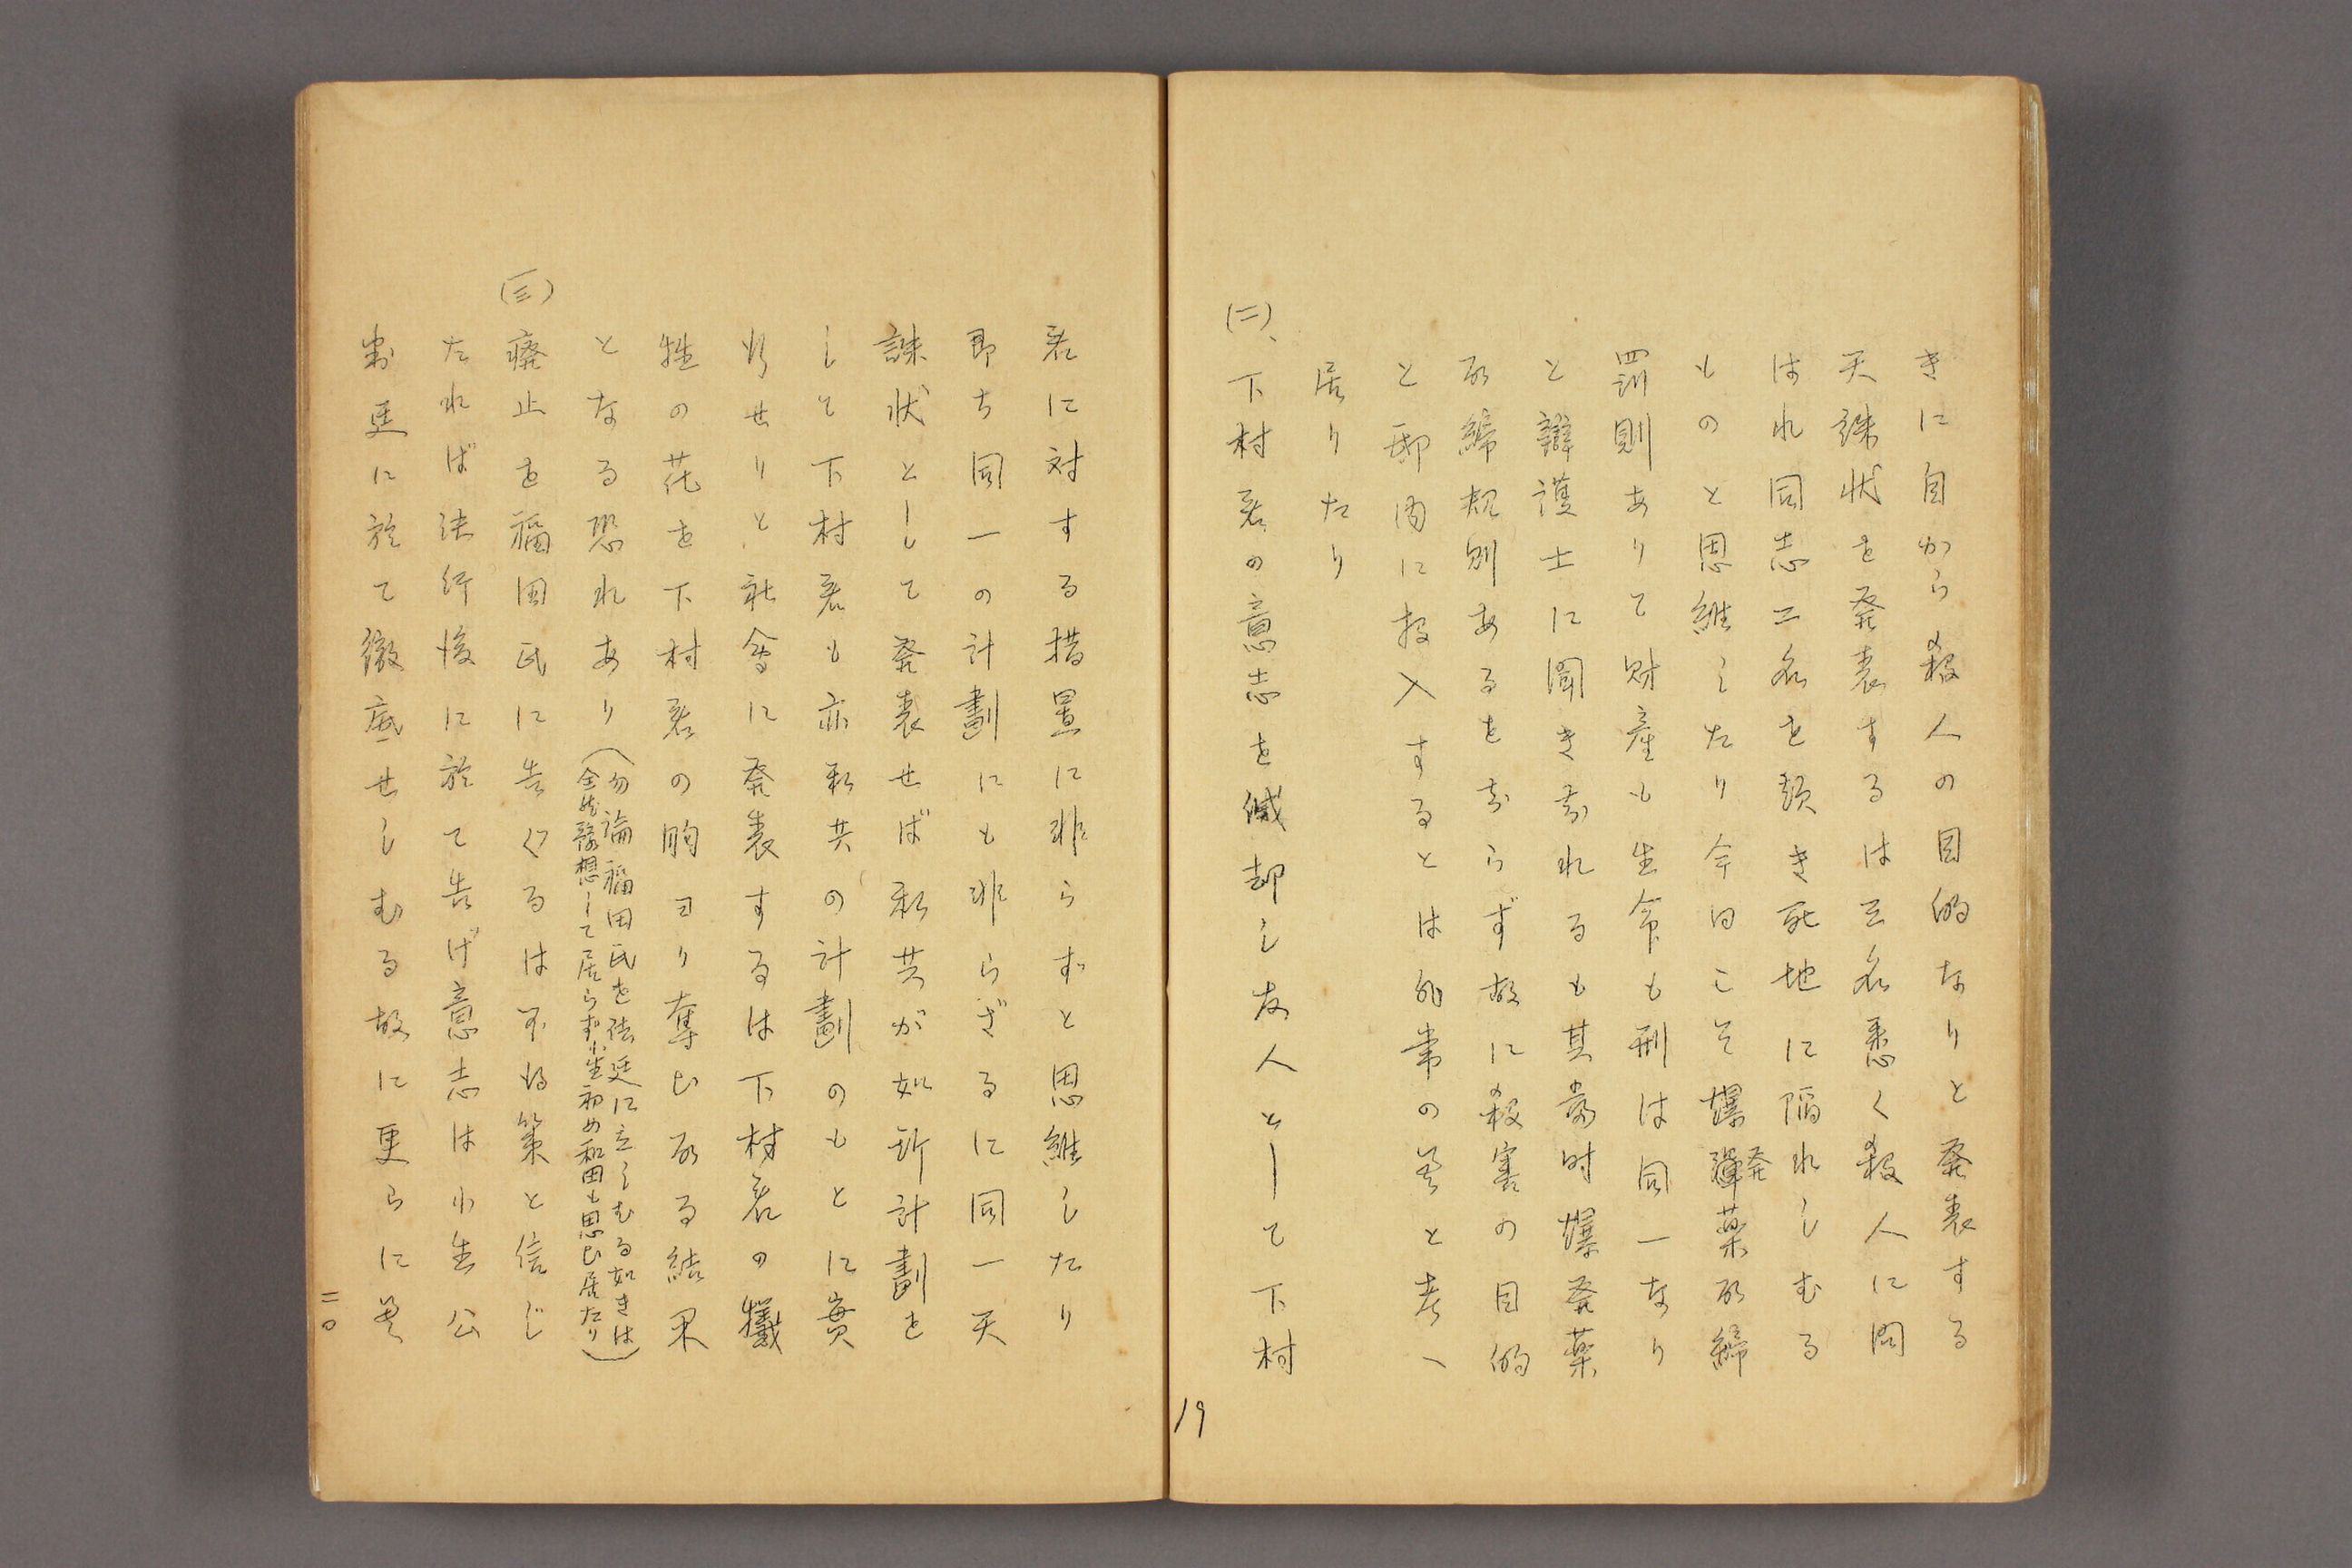 きに自から殺人の目的なりと発表する
天誅状を発表するは三名悉く殺人に問
はれ同志二名を頚き死地に陥れしむる
ものと思維したり今日こそ爆弾発薬取締
罰則ありて財産も生命も刑は同一なり
と辯護士に聞き知れるも其当時爆発薬
取締規則あるを知らず故に殺害の目的
と邸内に投入するとは非常の差と考へ
居りたり
(二)、下村君の意志を滅却し友人として下村
19
君に対する措置に非らずと思維したり
即ち同一の計劃にも非らざるに同一天
誅状として発表せば私共が如斯計劃を
して下村君も亦私共の計劃のもとに実
行せりと社会に発表するは下村君の犠
牲の花を下村君の胸ヨリ奪ひ取る結果
となる恐れあり(勿論福田氏を法廷に立しむる如きは
全然予想して居らず小生初め和田も思ひ居たり)
(三)癈止を福田氏に告ぐるは不得策と信じ
たれば決行後に於て告げ意志は小生公
判廷に於て徹底せしむる故に更らに差
二〇